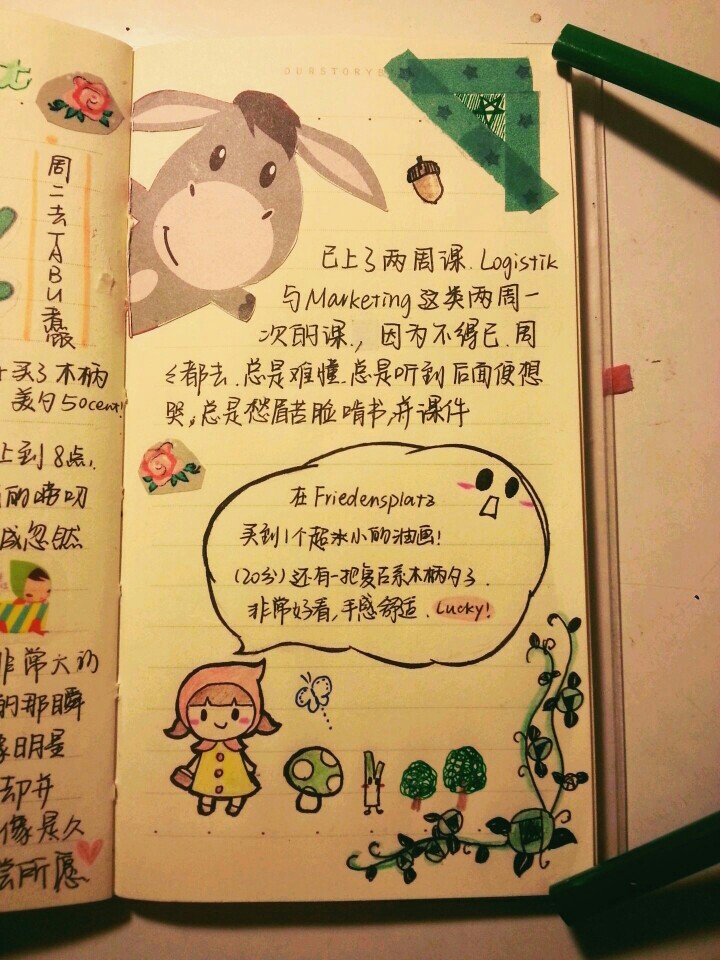 t
周
二
去
T
A
B
U
蹭
饭
买了木柄
美勺50cent!
上到8点,
成忽然
非常大的
的那瞬
像明星
却并
像是久
尝所愿
OURSTORYS
已上了两周课. Logistik
与Marketing这类两周一
次的课., 因为不得已. 周
々都去. 总是难懂. 总是听到后面便想
哭,总是愁眉苦脸啃书,并课件
在Friedensplatz
买到1个超迷小的油画!
(20分)还有一把复古系木柄勺子.
非常好看,手感舒适. Lucky!